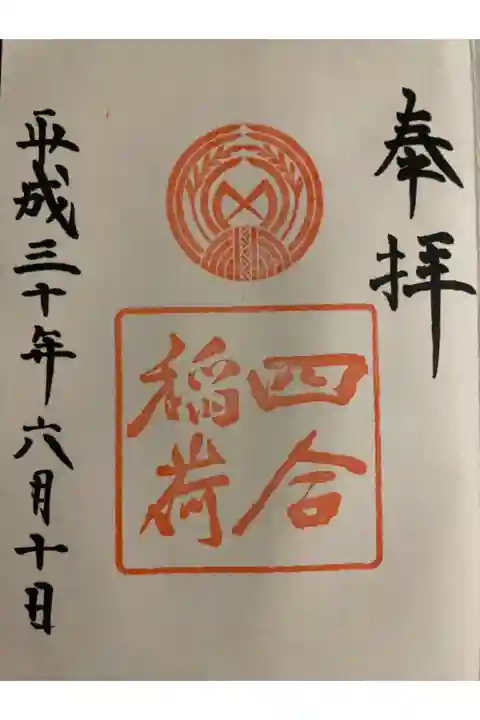 奉拝
四合
稲荷
平成三十年六月十日